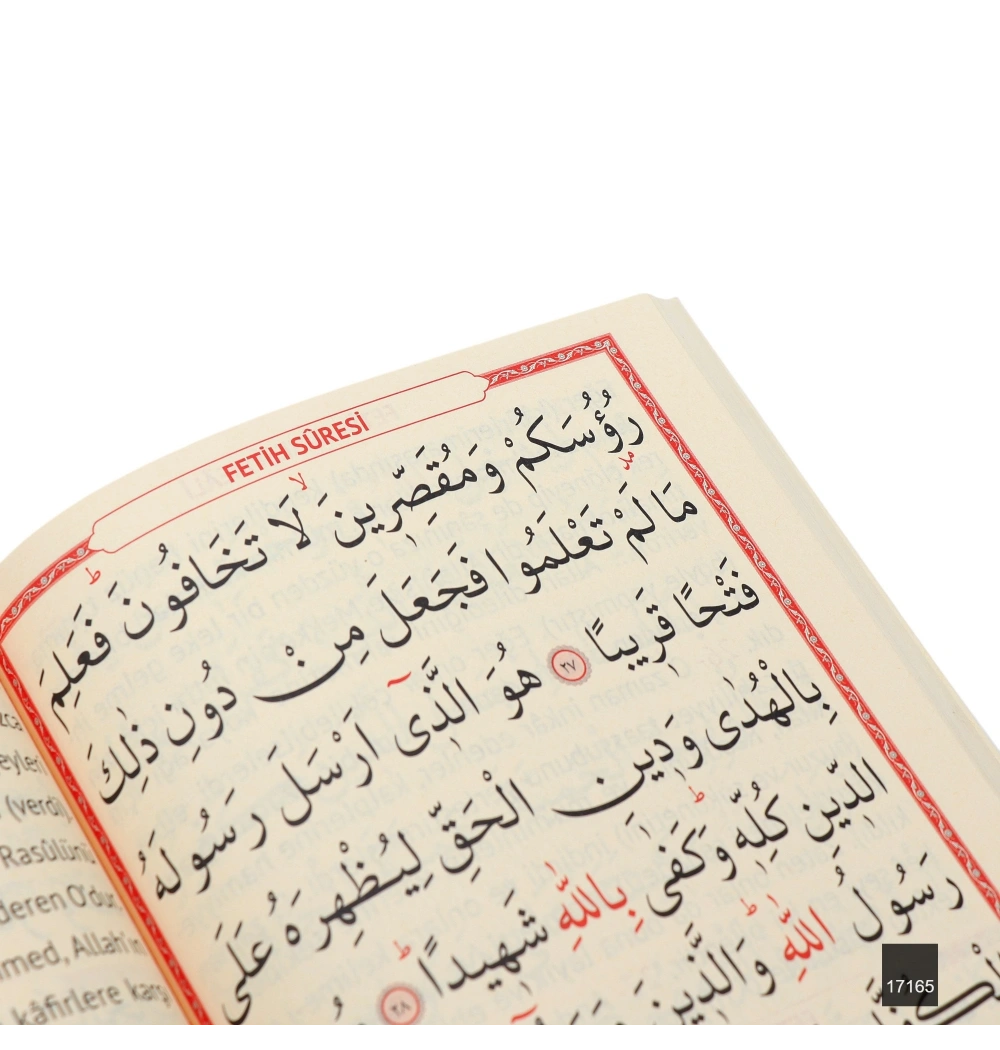 FETİH SÛRESİ
رُؤُسَكُمْ وَمُقَصِّرِينَ لَا تَخَافُونَ فَعَلِمَ
مَا لَمْ تَعْلَمُوا فَجَعَلَ مِنْ دُونِ ذٰلِكَ
فَتْحًا قَرِيبًا ﴿٢٧﴾ هُوَ الَّذٓى اَرْسَلَ رَسُولَهُ
بِالْهُدٰى وَدِينِ الْحَقِّ لِيُظْهِرَهُ عَلَى
الدِّينِ كُلِّهِ وَكَفٰى بِاللّٰهِ شَهِيدًا ﴿٢٨﴾
رَسُولُ اللّٰهِ وَالَّذِينَ
(verdi)
Rasûlünü
deren O'dur
Allah'ın
kâfirlere karşı
17165